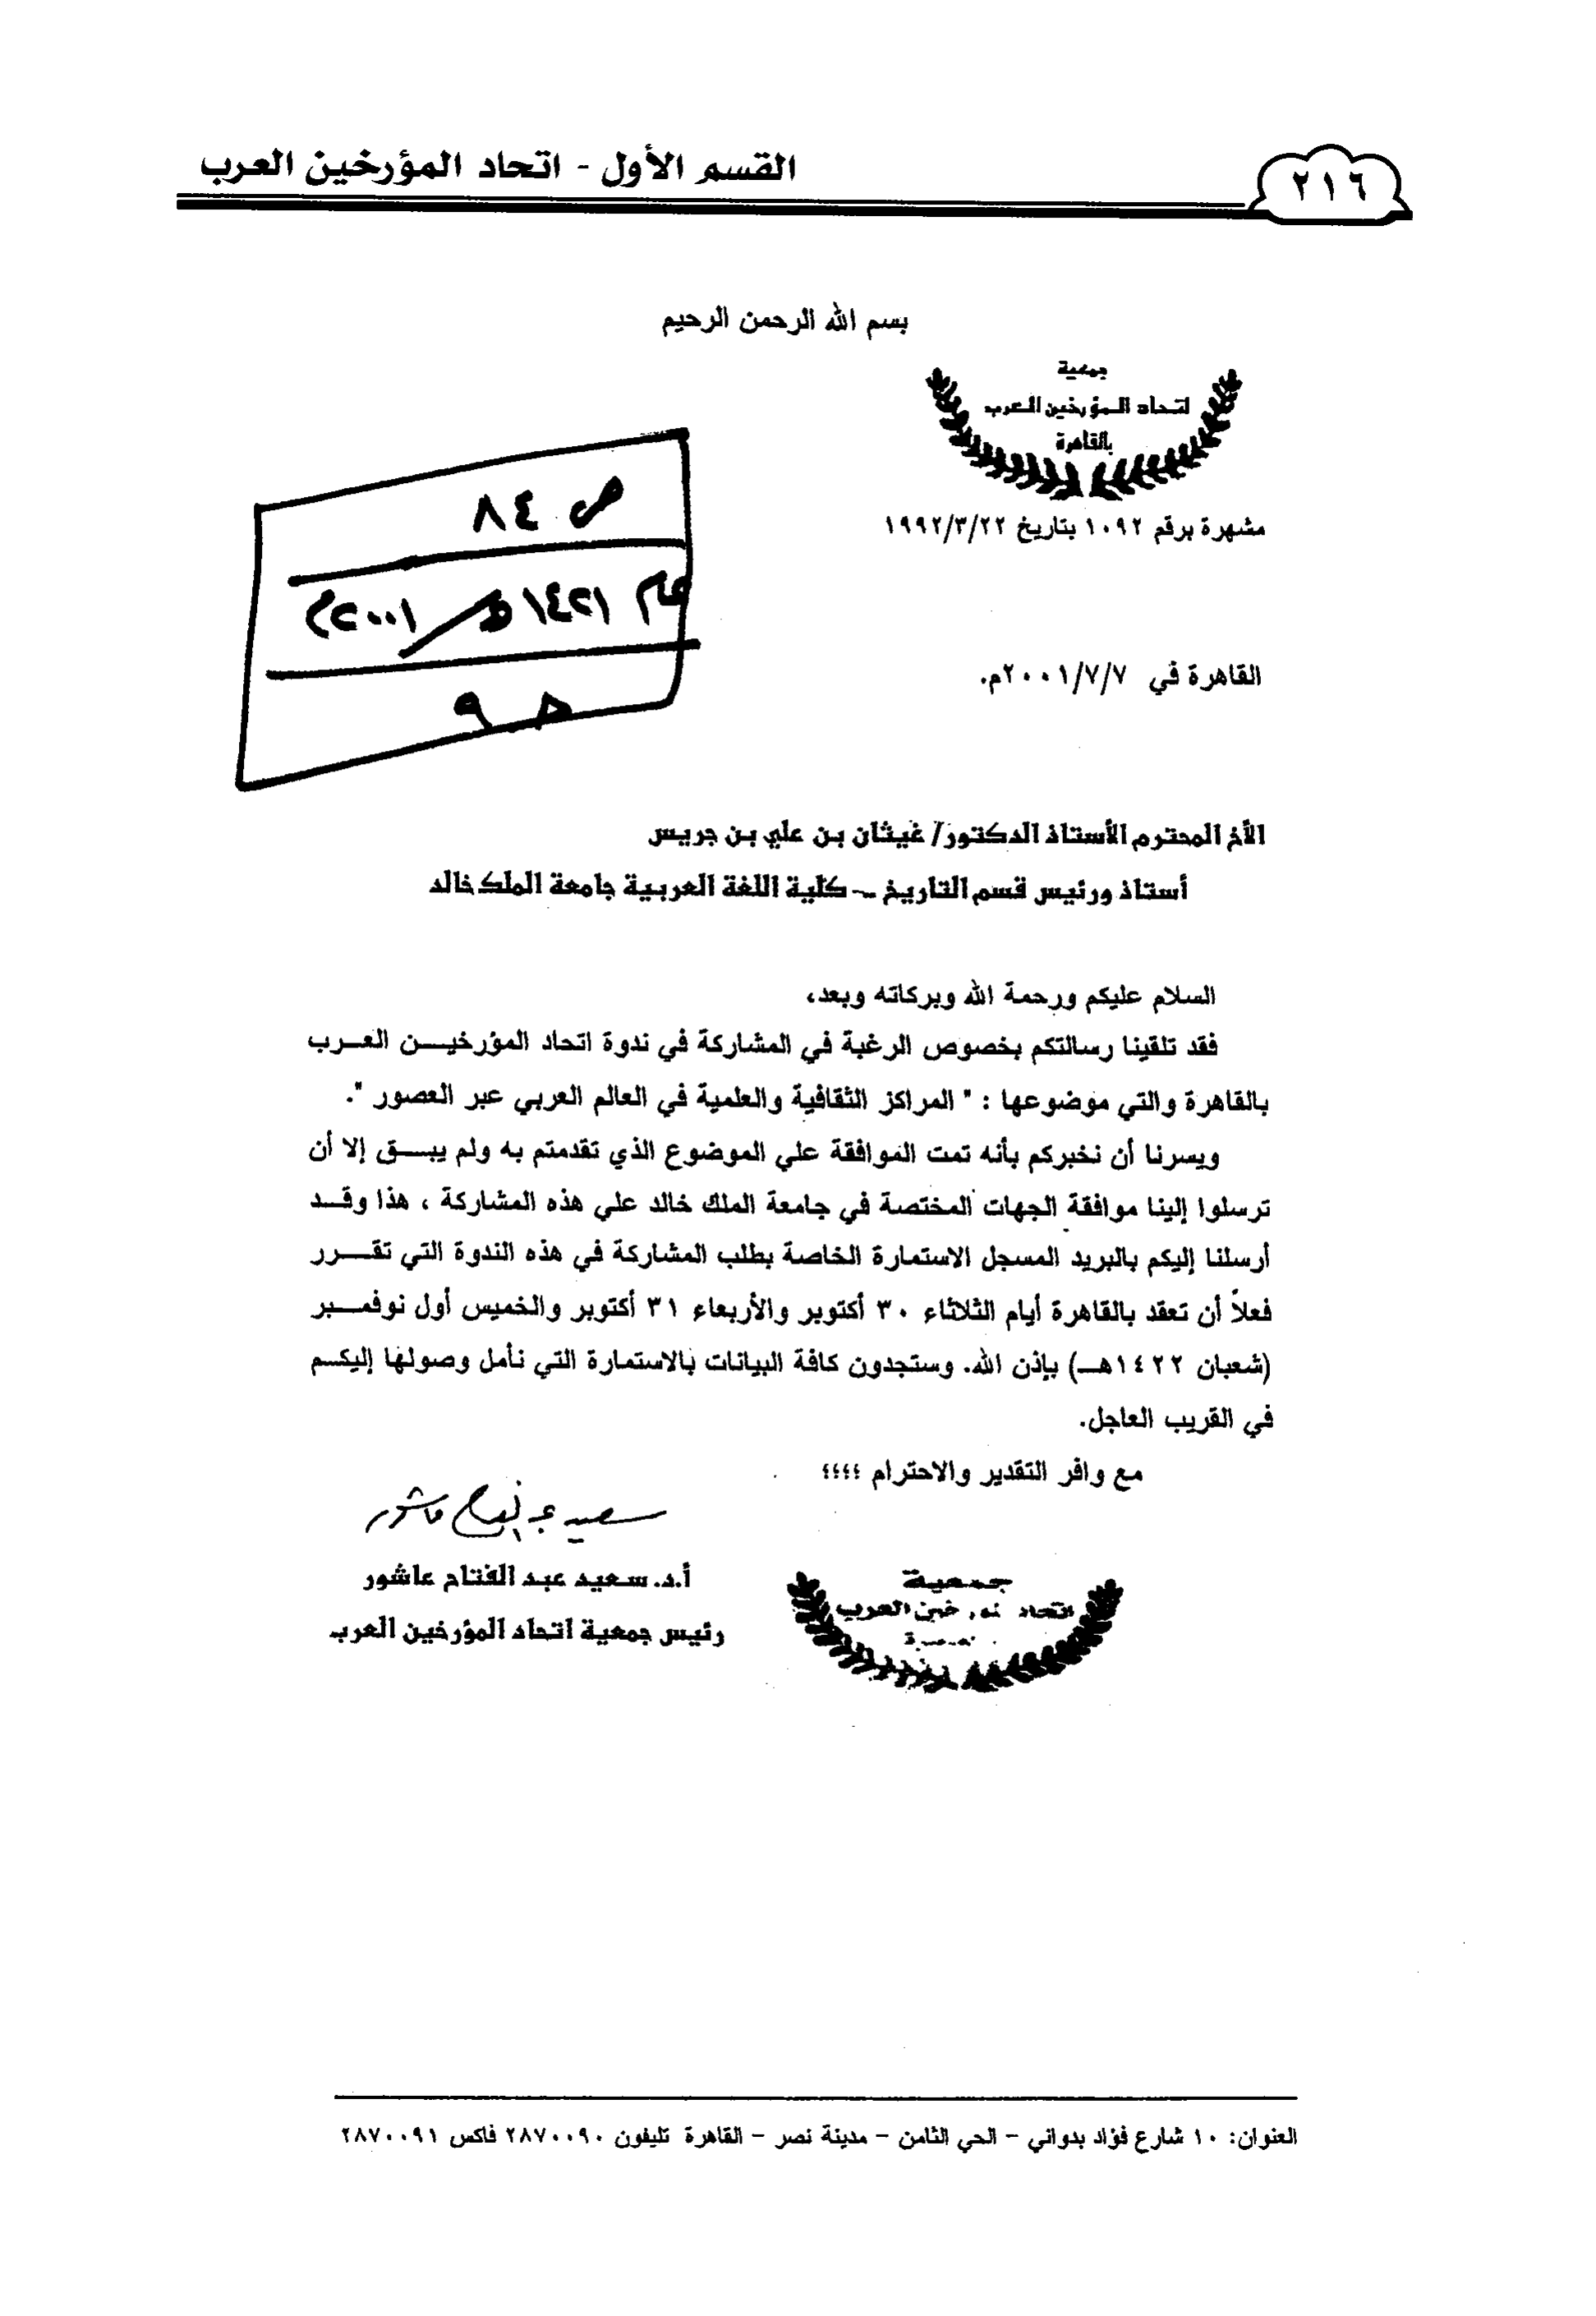 القسم الأول - اتحاد المؤرخين العرب
٢١٦
بسم الله الرحمن الرحيم
جمعية
اتحاد المؤرخين العرب
بالقاهرة
مشهرة برقم ١٠٩٢ بتاريخ ١٩٩٢/٣/٢٢
ص ٨٤
عام ١٤٢١هـ/٢٠٠١م
القاهرة في ٢٠٠١/٧/٧م.
الأخ المحترم الأستاذ الدكتور/ غيثان بن علي بن جريس
أستاذ ورئيس قسم التاريخ – كلية اللغة العربية جامعة الملك خالد
السلام عليكم ورحمة الله وبركاته وبعد،
فقد تلقينا رسالتكم بخصوص الرغبة في المشاركة في ندوة اتحاد المؤرخيـــن العـــرب
بالقاهرة والتي موضوعها : " المراكز الثقافية والعلمية في العالم العربي عبر العصور ".
ويسرنا أن نخبركم بأنه تمت الموافقة علي الموضوع الذي تقدمتم به ولم يبـــق إلا أن
ترسلوا إلينا موافقة الجهات المختصة في جامعة الملك خالد علي هذه المشاركة ، هذا وقـــد
أرسلنا إليكم بالبريد المسجل الاستمارة الخاصة بطلب المشاركة في هذه الندوة التي تقـــرر
فعلاً أن تعقد بالقاهرة أيام الثلاثاء ٣٠ أكتوبر والأربعاء ٣١ أكتوبر والخميس أول نوفمـــبر
(شعبان ١٤٢٢هـ) بإذن الله. وستجدون كافة البيانات بالاستمارة التي نأمل وصولها إليكـــم
في القريب العاجل.
مع وافر التقدير والاحترام ؛؛؛؛
سعيد عبد الفتاح عاشور
أ.د. سعيد عبد الفتاح عاشور
رئيس جمعية اتحاد المؤرخين العرب
جمعية
اتحاد المؤرخين العرب
العنوان: ١٠ شارع فؤاد بدواني – الحي الثامن – مدينة نصر – القاهرة تليفون ٢٨٧٠٠٩٠ فاكس ٢٨٧٠٠٩١